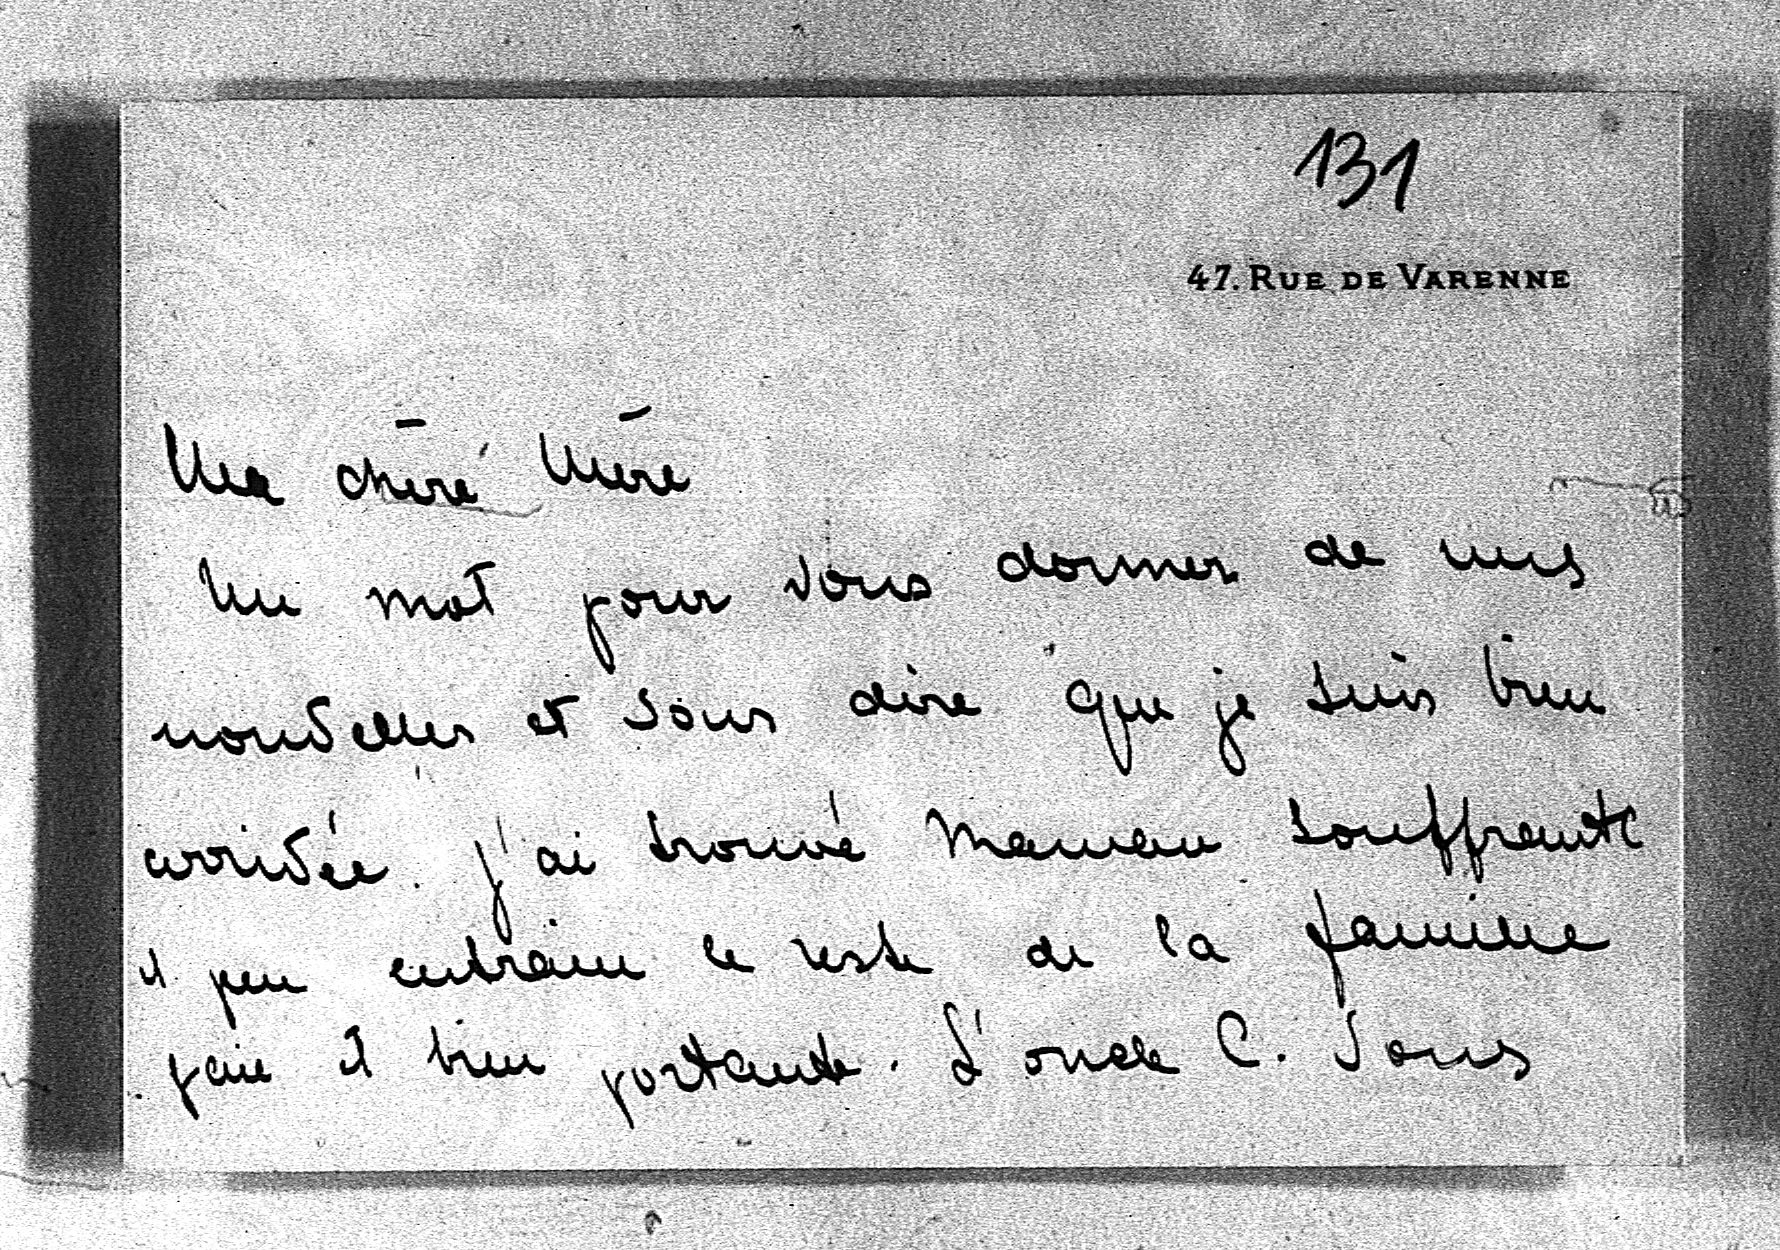 131
47. RUE DE VARENNE
Ma chère Mère
Un mot pour vous donner de mes
nouvelles et vous dire que je suis bien
arrivée. j'ai trouvé Maman souffrante
et peu entrain le reste de la famille
gaie et bien portante. L'oncle C. vous